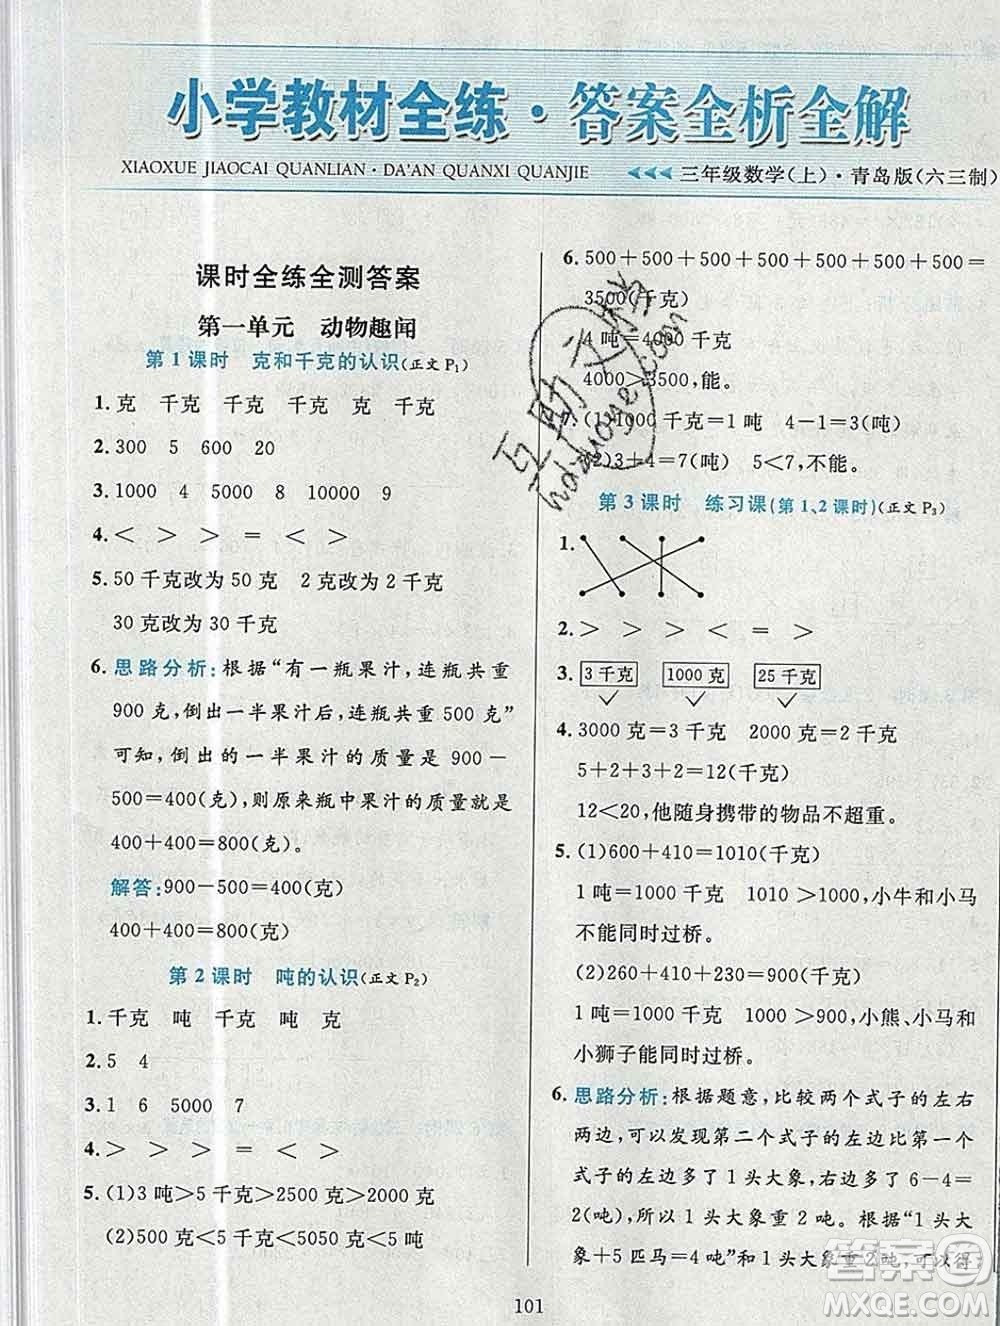 小学教材全练·答案全析全解
XIAOXUE JIAOCAI QUANLIAN·DA'AN QUANXI QUANJIE
三年级数学(上)·青岛版(六三制)
课时全练全测答案
第一单元 动物趣闻
第1课时 克和千克的认识(正文P₁)
1. 克 千克 千克 千克 克 千克
2. 300 5 600 20
3. 1000 4 5000 8 10000 9
4. < > > < > >
5. 50千克改为50克 2克改为2千克
30克改为30千克
6. 思路分析:根据“有一瓶果汁,连瓶共重
900克,倒出一半果汁后,连瓶共重500克”
可知,倒出的一半果汁的质量是900-
500=400(克),则原来瓶中果汁的质量就是
400+400=800(克)。
解答:900-500=400(克)
400+400=800(克)
第2课时 吨的认识(正文P₂)
1. 千克 吨 千克 吨 克
2. 5 4
3. 1 6 5000 7
4. > > > > = <
5. (1)3吨>5千克>2500克>2000克
(2)5千克<5吨<5050克<50吨
6. 500+500+500+500+500+500+500=
3500(千克)
4吨=4000千克
4000>3500,能。
7. (1)1000千克=1吨 4-1=3(吨)
(2)3+4=7(吨) 5<7,不能。
第3课时 练习课(第1、2课时)(正文P₃)
1.
2. > > > < = >
3. 3千克 1000克 25千克
4. 3000克=3千克 2000克=2千克
5+2+3+2=12(千克)
12<20,他随身携带的物品不超重。
5. (1)600+410=1010(千克)
1吨=1000千克 1010>1000,小牛和小马
不能同时过桥。
(2)260+410+230=900(千克)
1吨=1000千克 1000>900,小熊、小马和
小狮子能同时过桥。
6. 思路分析:根据题意,比较两个式子的左右
两边,可以发现第二个式子的左边比第一个
式子的左边多了1头大象,右边多了6-4=
2(吨),所以1头大象重2吨。根据“1头大
象+5匹马=4吨”和1头大象重2吨,可以得:
101
互助文档
hdzuoye.com
答案圈
MXQE.COM